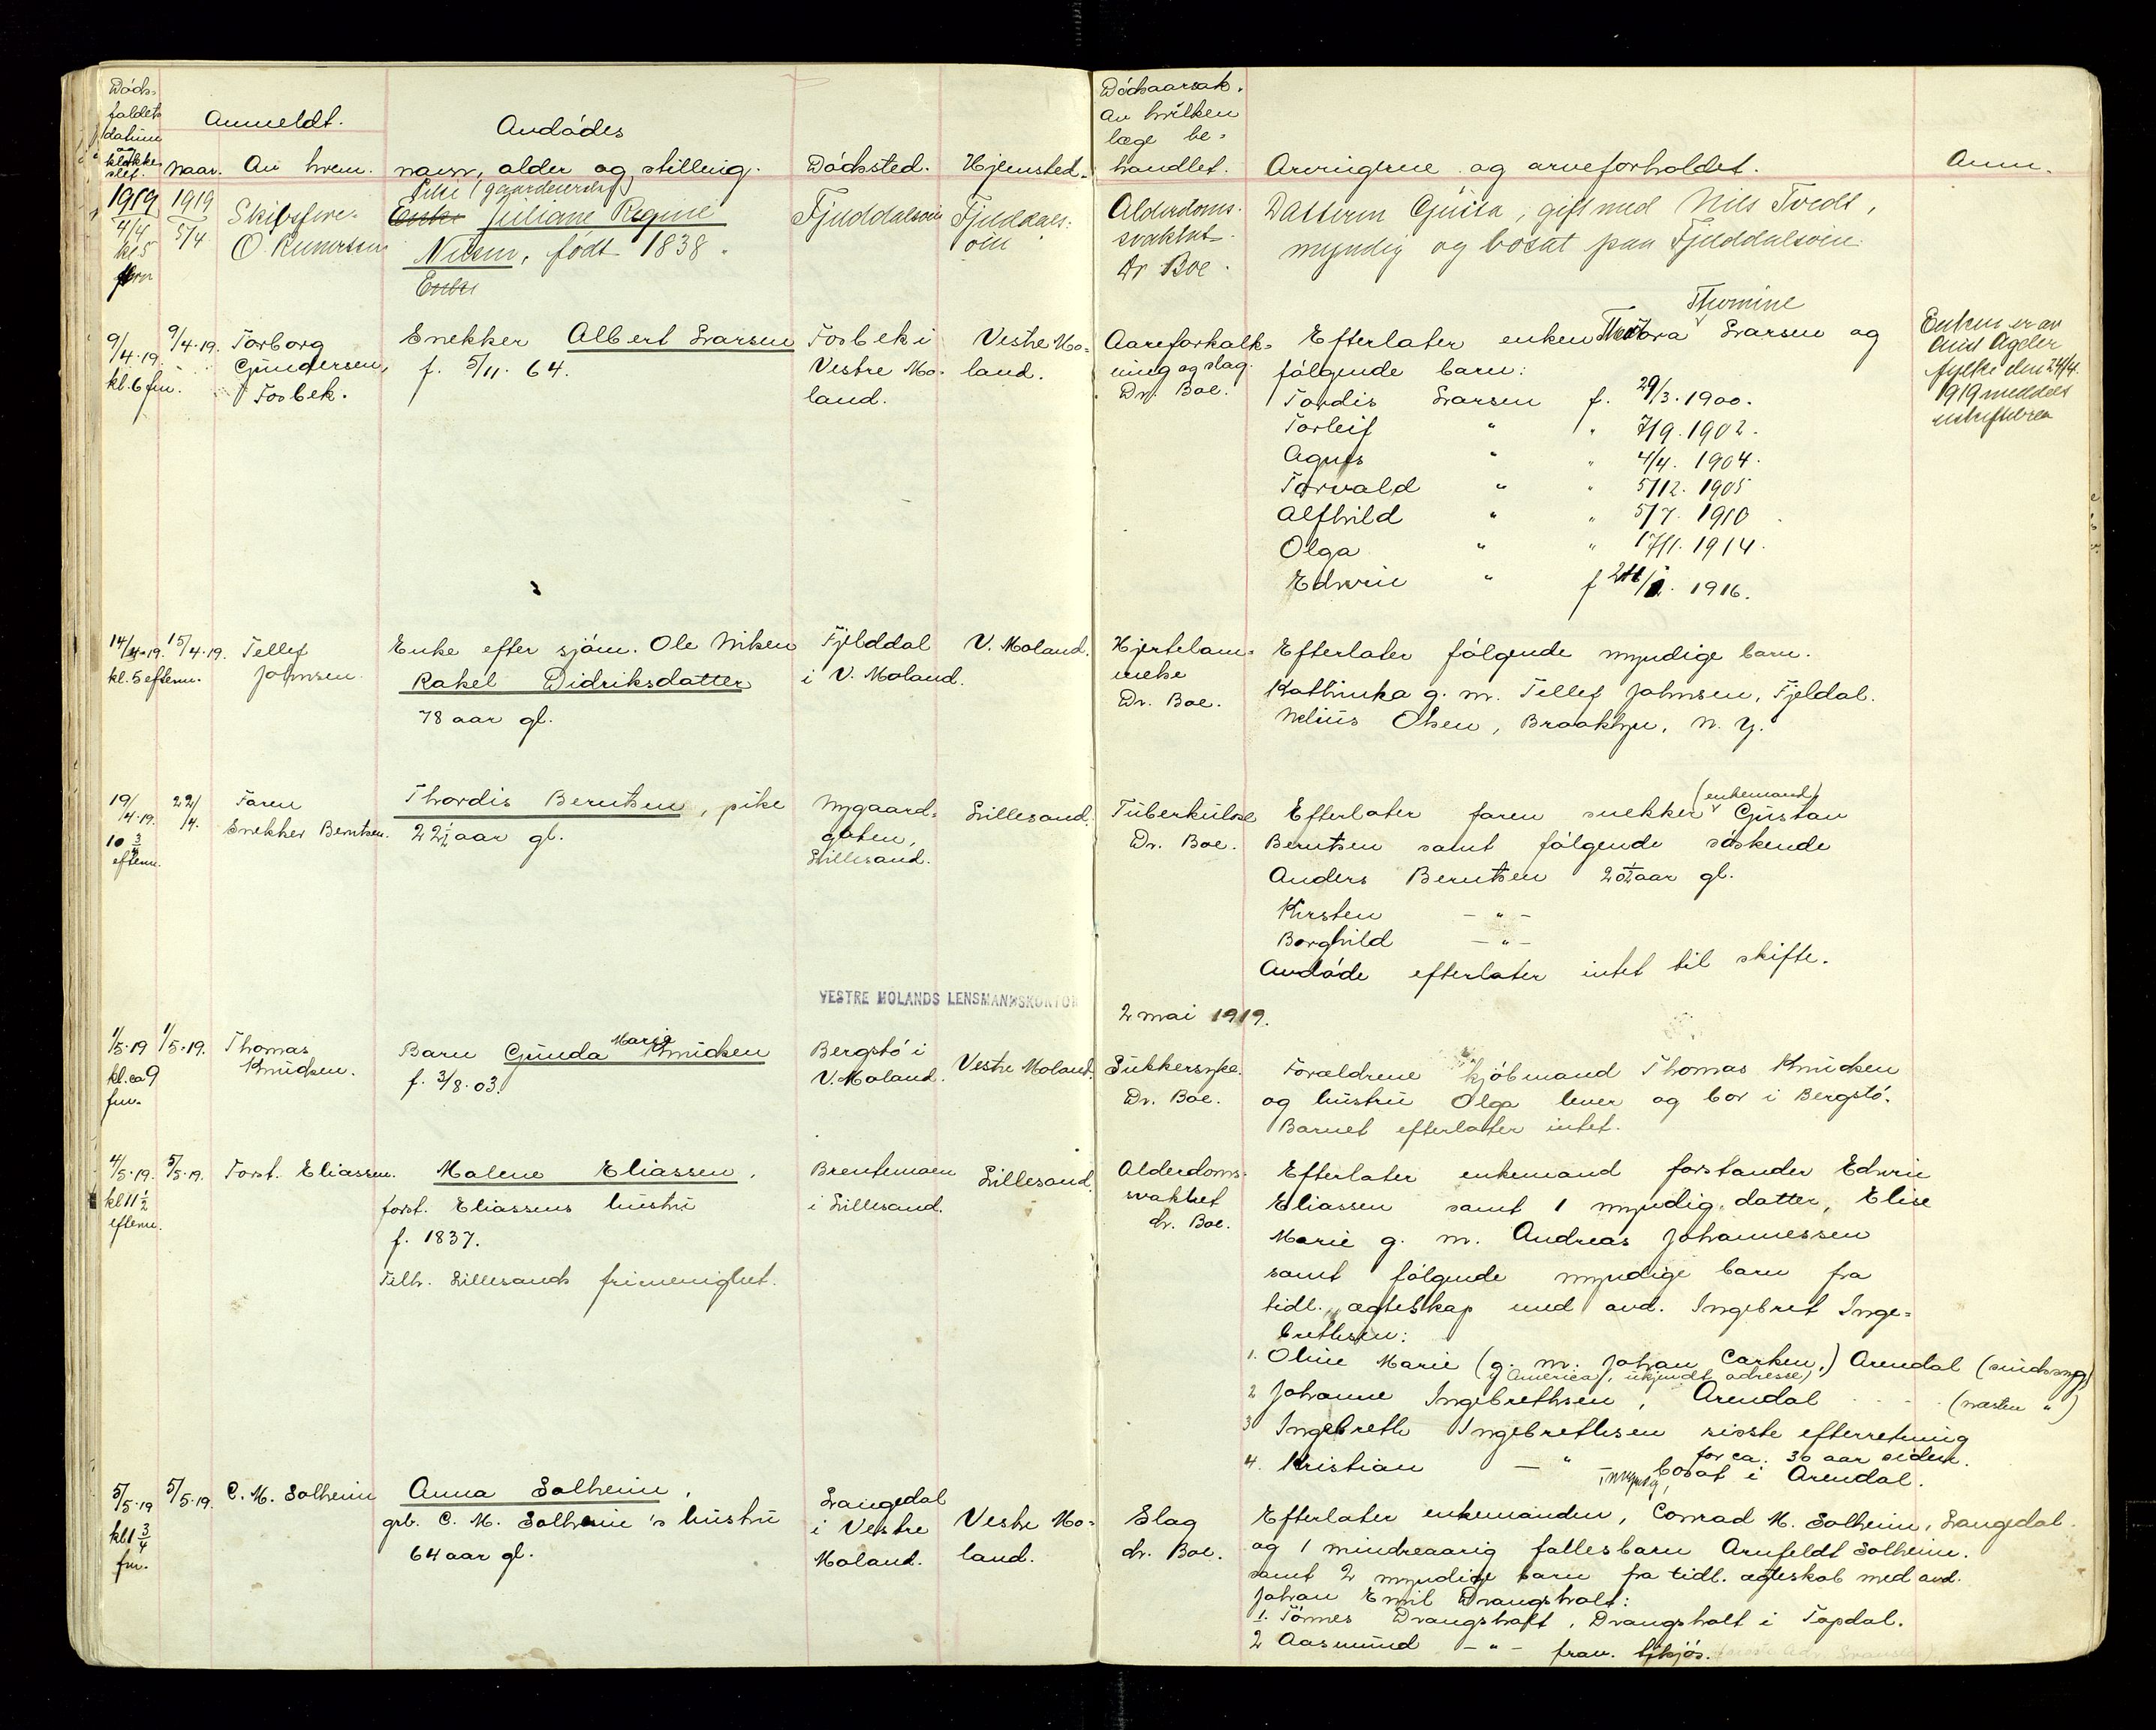 Dödsfaldets datum og klokkeslet.
Anmeldt.
naar. Av hvem.
Avdödes
navn, alder og stilling.
Dödssted.
Hjemsted.
Dödsaarsak.
Av hvilken
læge be-
handlet.
Arvingerne og arveforholdet.
Anm.
1919
4/4
kl 5
1919
5/4
O.
Pike
Enke Juliane Regine
Nilsen, født 1838.
Enke
Alderdoms-
svakhet
Dr Boe.
Datteren Gusta, gift med Nils Tvedt,
myndig og bosat paa Fjelddalsøien.
9/4.19.
kl. 6 fm.
9/4.19.
Torborg
Gundersen,
Fosbek.
Snekker Albert Larsen
f. 5/11. 64.
Fosbek i
Vestre Mo-
land.
Vestre Mo-
land.
Aareforkalk-
ning og slag.
Dr. Boe.
Thomine
Efterlater enken Larsen og
følgende barn:
Tordis Larsen f. 29/3. 1900.
Torleif " " 7/9. 1902.
Agnes " " 4/4. 1904.
Torvald " " 5/12. 1905
Alfhild " " 5/7. 1910
Olga " " 17/1. 1914.
Edwin " f 1916.
Enken er av
Aust Agder
fylke den 24/4.
1919 meddelt
14/4.19.
kl. 5 efterm.
15/4.19.
Tellef
Johnsen.
Enke efter sjöm. Ole
Rakel Didriksdatter
78 aar gl.
Fjelddal
i V. Moland.
V. Moland.
Hjertelam-
melse
Dr. Boe.
Efterlater följende myndige barn.
Kathinka g. m. Tellef Johnsen, Fjeldal.
Nelius Olsen, Brooklyn, N. Y.
19/4.19.
10 3/4
efterm.
22/4.
Faren
Snekker Berntsen.
Thordis Berntsen, pike
22 1/2 aar gl.
Nygaard-
gaten,
Lillesand.
Lillesand.
Tuberkulose
Dr. Boe.
(enkemand)
Efterlater faren snekker Gustav
Berntsen samt följende söskende
Anders Berntsen 20 1/2 aar gl.
Kirsten — " —
Borghild — " —
Avdöde efterlater intet til skifte.
VESTRE MOLANDS LENSMANNSKONTOR
2 mai 1919.
1/5.19
kl. ca 9
fm.
1/5.19.
Thomas
Knudsen.
Barn Gunda Marie Knudsen
f. 3/8.03.
Bergstö i
V. Moland.
Vestre Moland.
Sukkersyke.
Dr. Boe.
Forældrene kjöbmand Thomas Knudsen
og hustru Olga lever og bor i Bergstö.
Barnet efterlater intet.
4/5.19.
kl 11 1/2
efterm.
5/5.19.
Forst. Eliassen.
Malene Eliassen,
forst. Eliassens hustru
f. 1837.
Tilh. Lillesands frimenighet.
Brentemoen
i Lillesand.
Lillesand.
Alderdoms-
svakhet
dr. Boe.
Efterlater enkemand forstander Edwin
Eliassen samt 1 myndig datter, Elise
Marie g. m. Andreas Johannessen
samt följende myndige barn fra
tidl. ægteskap med avd. Ingebret Inge-
brethsen:
1. Oline Marie (g. m. Johan Carlsen,) Arendal (sindssyg)
(i America, ukjendt adresse)
2 Johanne Ingebrethsen, Arendal (næsten ")
3 Ingebreth Ingebrethsen sisste efterretning
for ca. 30 aar siden.
4. Kristian — " — bosat i Arendal.
5/5.19
kl 1 3/4
fm.
5/5.19.
C. M. Solheim
Anna Solheim,
grb. C. M. Solheim's hustru
64 aar gl.
Langedal
i Vestre
Moland.
Vestre Mo-
land.
Slag
dr. Boe.
Efterlater enkemanden, Conrad M. Solheim, Langedal.
og 1 mindreaarig fællesbarn Arnfeldt Solheim.
samt 2 myndige barn fra tidl. ægteskab med avd.
Johan Emil Drangsholt:
1. Tönnes Drangsholt, Drangsholt i Topdal.
2 Aasmund — " — frav. tilsjös.